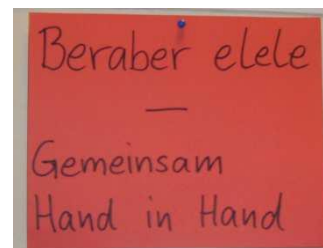 Beraber elele
—
Gemeinsam
Hand in Hand